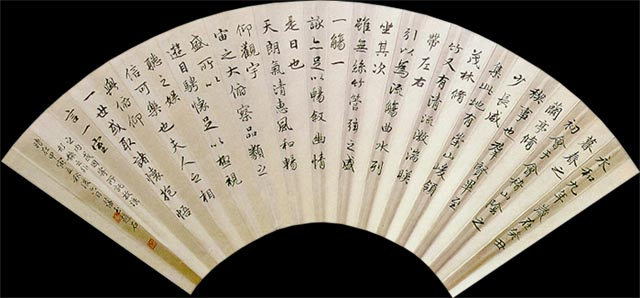 永和九年歲在癸丑
暮春之
初會于會稽山陰之
蘭亭脩
禊事也羣賢畢至
少長咸
集此地有崇山峻領
茂林脩
竹又有清流激湍暎
帶左右
引以為流觴曲水列
坐其次
雖無絲竹管弦之盛
一觴一
詠亦足以暢敘幽情
是日也
天朗氣清惠風和暢
仰觀宇
宙之大俯察品類之
盛所以
遊目騁懷足以極視
聽之娛
信可樂也夫人之相
與俯仰
一世或取諸懷抱悟
言一室
之內或因寄所託放浪